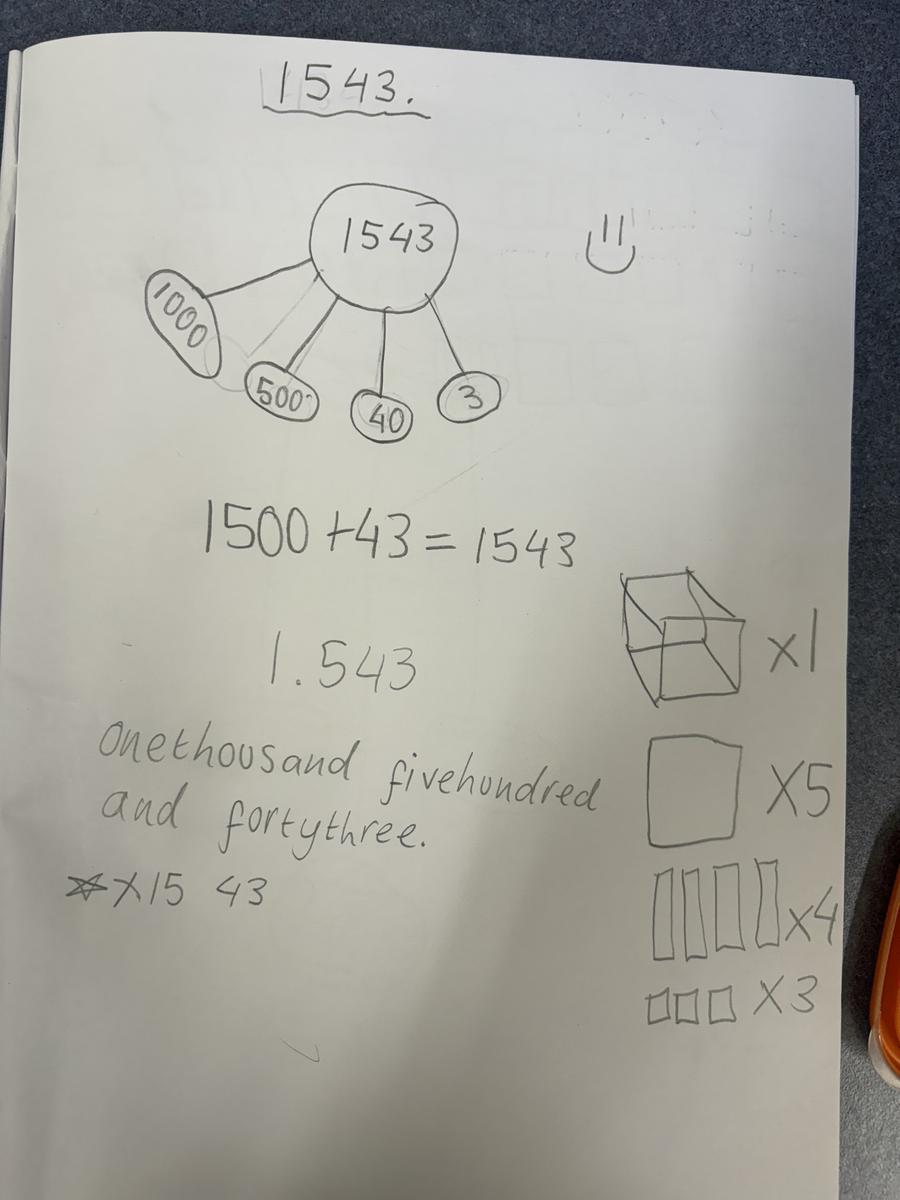 1543.
1543
1000
500
40
3
1500+43=1543
1.543
x1
Onethousand fivehundred
and fortythree.
x5
x15 43
x4
x3